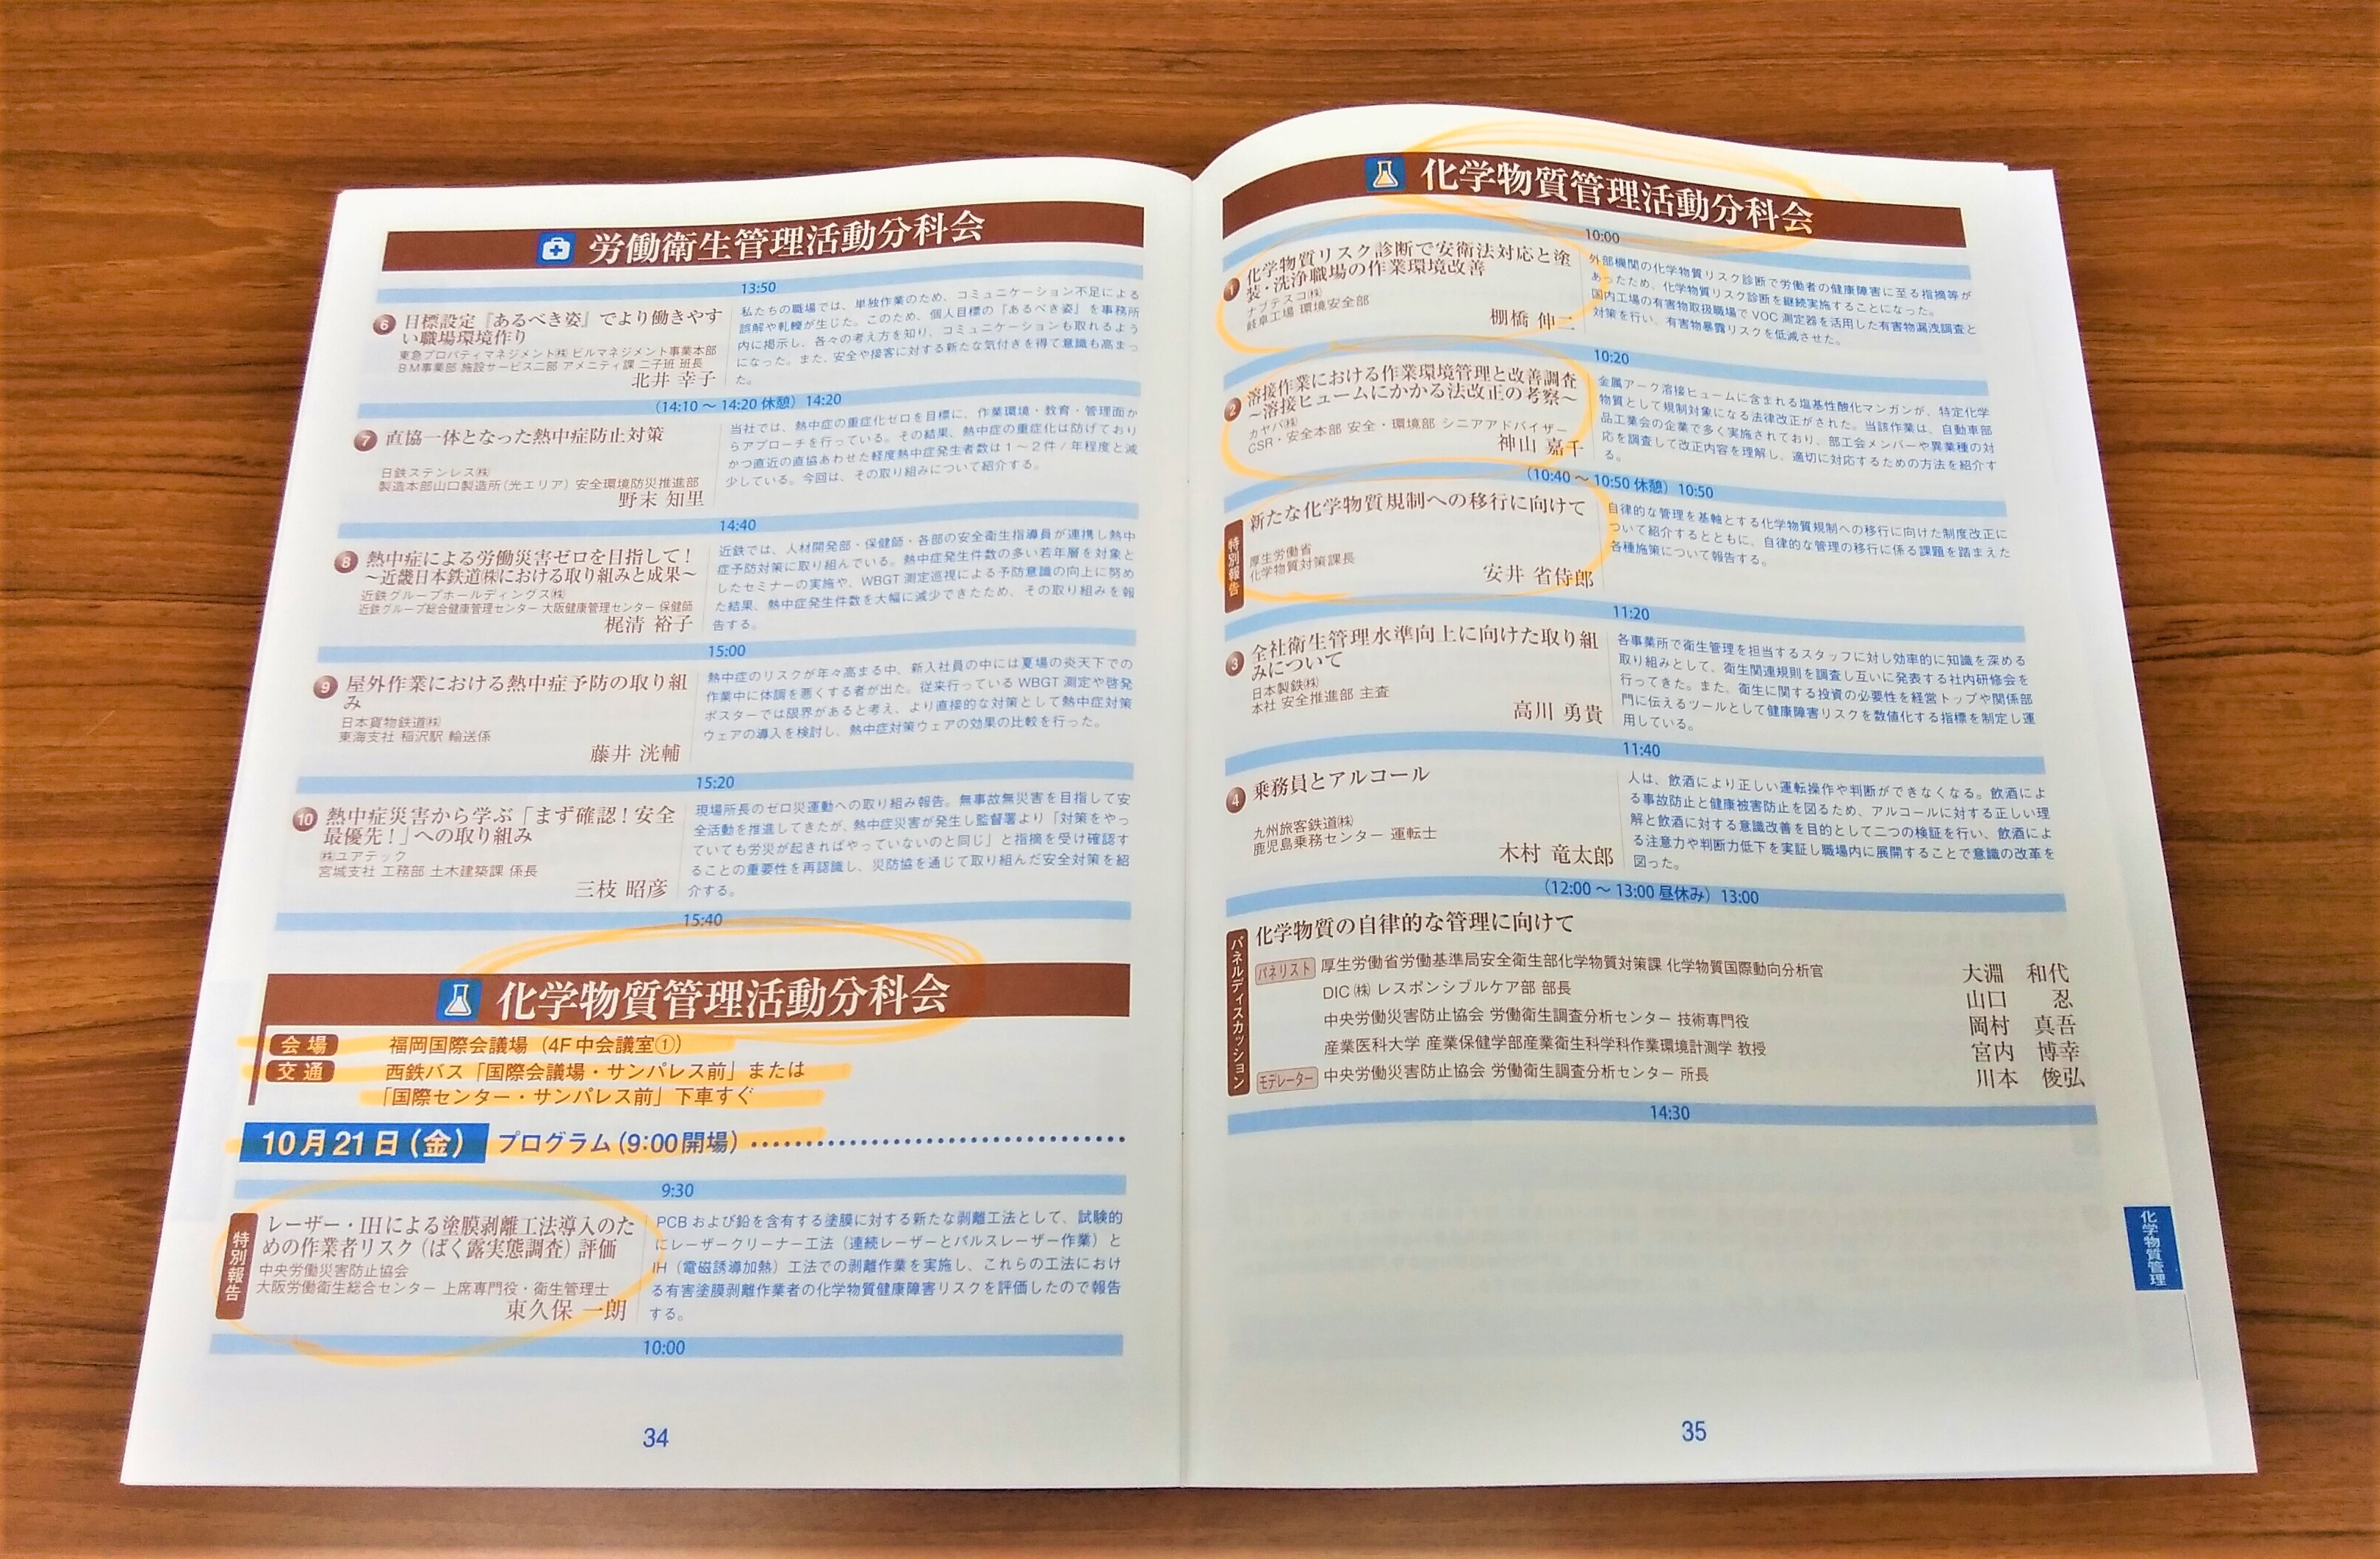 労働衛生管理活動分科会
13:50
6 目標設定『あるべき姿』でより働きやす
い職場環境作り
東急プロパティマネジメント㈱ ビルマネジメント事業本部
BM事業部 施設サービス二部 アメニティ課 二子班 班長
北井 幸子
私たちの職場では、単独作業のため、コミュニケーション不足による
誤解や軋轢が生じた。このため、個人目標の『あるべき姿』を事務所
内に掲示し、各々の考え方を知り、コミュニケーションも取れるよう
になった。また、安全や接客に対する新たな気付きを得て意識も高まっ
た。
(14:10 ～ 14:20 休憩) 14:20
7 直協一体となった熱中症防止対策
日鉄ステンレス㈱
製造本部山口製造所(光エリア) 安全環境防災推進部
野末 知里
当社では、熱中症の重症化ゼロを目標に、作業環境・教育・管理面か
らアプローチを行っている。その結果、熱中症の重症化は防げており
かつ直近の直協あわせた軽度熱中症発生者数は1～2件/年程度と減
少している。今回は、その取り組みについて紹介する。
14:40
8 熱中症による労働災害ゼロを目指して！
～近畿日本鉄道㈱における取り組みと成果～
近鉄グループホールディングス㈱
近鉄グループ総合健康管理センター 大阪健康管理センター 保健師
梶清 裕子
近鉄では、人材開発部・保健師・各部の安全衛生指導員が連携し熱中
症予防対策に取り組んでいる。熱中症発生件数の多い若年層を対象と
したセミナーの実施や、WBGT 測定巡視による予防意識の向上に努め
た結果、熱中症発生件数を大幅に減少できたため、その取り組みを報
告する。
15:00
9 屋外作業における熱中症予防の取り組
み
日本貨物鉄道㈱
東海支社 稲沢駅 輸送係
藤井 洸輔
熱中症のリスクが年々高まる中、新入社員の中には夏場の炎天下での
作業中に体調を悪くする者が出た。従来行っている WBGT 測定や啓発
ポスターでは限界があると考え、より直接的な対策として熱中症対策
ウェアの導入を検討し、熱中症対策ウェアの効果の比較を行った。
15:20
10 熱中症災害から学ぶ「まず確認！安全
最優先！」への取り組み
㈱ユアテック
宮城支社 工務部 土木建築課 係長
三枝 昭彦
現場所長のゼロ災運動への取り組み報告。無事故無災害を目指して安
全活動を推進してきたが、熱中症災害が発生し監督署より「対策をやっ
ていても労災が起きればやっていないのと同じ」と指摘を受け確認す
ることの重要性を再認識し、災防協を通じて取り組んだ安全対策を紹
介する。
15:40
化学物質管理活動分科会
会場 福岡国際会議場（4F 中会議室①）
交通 西鉄バス「国際会議場・サンパレス前」または
「国際センター・サンパレス前」下車すぐ
10月21日（金） プログラム（9:00 開場）
9:30
特別報告
レーザー・IHによる塗膜剥離工法導入のた
めの作業者リスク（ばく露実態調査）評価
中央労働災害防止協会
大阪労働衛生総合センター 上席専門役・衛生管理士
東久保 一朗
PCB および鉛を含有する塗膜に対する新たな剥離工法として、試験的
にレーザークリーナー工法（連続レーザーとパルスレーザー作業）と
IH（電磁誘導加熱）工法での剥離作業を実施し、これらの工法におけ
る有害塗膜剥離作業者の化学物質健康障害リスクを評価したので報告
する。
10:00
34
化学物質管理活動分科会
10:00
1 化学物質リスク診断で安衛法対応と塗
装・洗浄職場の作業環境改善
ナブテスコ㈱
岐阜工場 環境安全部
棚橋 伸二
外部機関の化学物質リスク診断で労働者の健康障害に至る指摘等が
あったため、化学物質リスク診断を継続実施することになった。
国内工場の有害物取扱職場で VOC 測定器を活用した有害物漏洩調査と
対策を行い、有害物暴露リスクを低減させた。
10:20
2 溶接作業における作業環境管理と改善調査
～溶接ヒュームにかかる法改正の考察～
カヤバ㈱
CSR・安全本部 安全・環境部 シニアアドバイザー
神山 嘉千
金属アーク溶接ヒュームに含まれる塩基性酸化マンガンが、特定化学
物質として規制対象になる法律改正がされた。当該作業は、自動車部
品工業会の企業で多く実施されており、部工会メンバーや異業種の対
応を調査して改正内容を理解し、適切に対応するための方法を紹介す
る。
(10:40 ～ 10:50 休憩) 10:50
特別報告
新たな化学物質規制への移行に向けて
厚生労働省
化学物質対策課長
安井 省侍郎
自律的な管理を基軸とする化学物質規制への移行に向けた制度改正に
ついて紹介するとともに、自律的な管理の移行に係る課題を踏まえた
各種施策について報告する。
11:20
3 全社衛生管理水準向上に向けた取り組
みについて
日本製鉄㈱
本社 安全推進部 主査
高川 勇貴
各事業所で衛生管理を担当するスタッフに対し効率的に知識を深める
取り組みとして、衛生関連規則を調査し互いに発表する社内研修会を
行ってきた。また、衛生に関する投資の必要性を経営トップや関係部
門に伝えるツールとして健康障害リスクを数値化する指標を制定し運
用している。
11:40
4 乗務員とアルコール
九州旅客鉄道㈱
鹿児島乗務センター 運転士
木村 竜太郎
人は、飲酒により正しい運転操作や判断ができなくなる。飲酒によ
る事故防止と健康被害防止を図るため、アルコールに対する正しい理
解と飲酒に対する意識改善を目的として二つの検証を行い、飲酒によ
る注意力や判断力低下を実証し職場内に展開することで意識の改革を
図った。
(12:00 ～ 13:00 昼休み) 13:00
パネルディスカッション
化学物質の自律的な管理に向けて
パネリスト 厚生労働省労働基準局安全衛生部化学物質対策課 化学物質国際動向分析官 大淵 和代
DIC ㈱ レスポンシブルケア部 部長 山口 忍
中央労働災害防止協会 労働衛生調査分析センター 技術専門役 岡村 真吾
産業医科大学 産業保健学部産業衛生科学科作業環境計測学 教授 宮内 博幸
モデレーター 中央労働災害防止協会 労働衛生調査分析センター 所長 川本 俊弘
14:30
化学物質管理
35